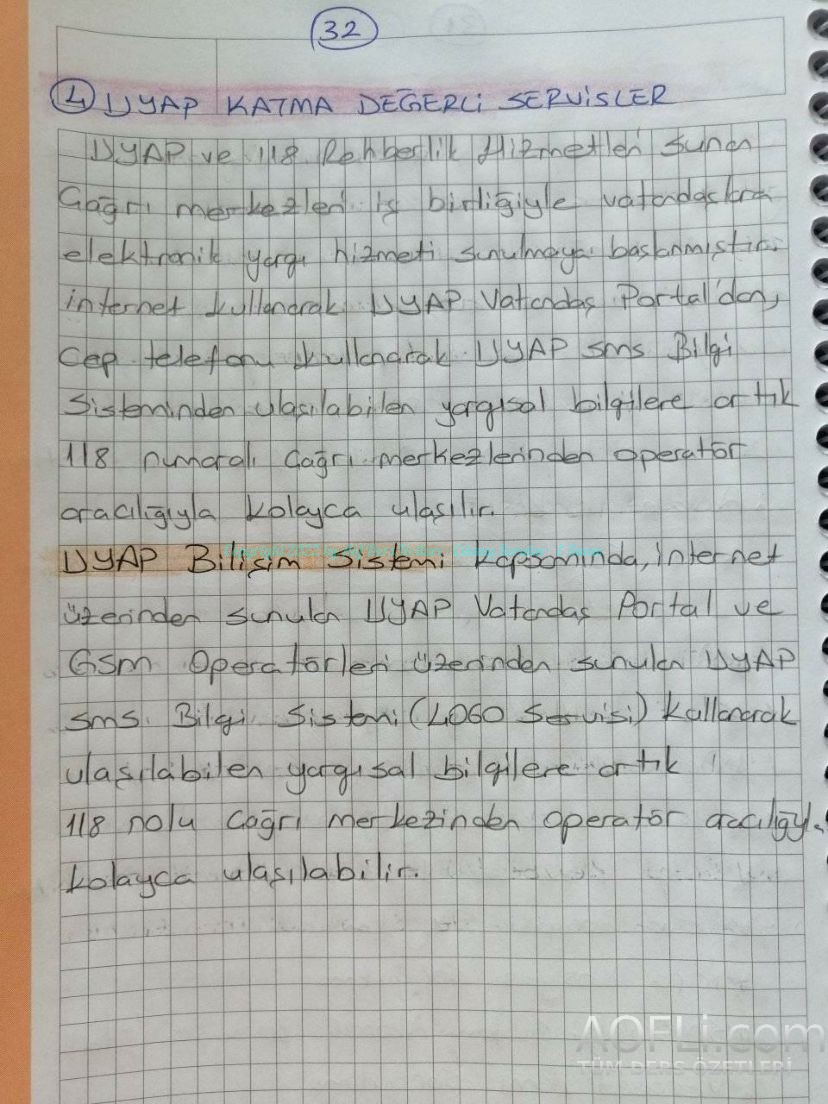 32
4) UYAP KATMA DEĞERLİ SERVİSLER
UYAP ve 118 Rehberlik Hizmetleri Sunan
Çağrı merkezleri iş birliğiyle vatandaşlara
elektronik yargı hizmeti sunulmaya başlanmıştır.
internet kullanarak UYAP Vatandaş Portal'dan,
Cep telefonu kullanarak UYAP sms Bilgi
Sisteminden ulaşılabilen yargısal bilgilere artık
118 numaralı çağrı merkezlerinden operatör
aracılığıyla kolayca ulaşılır.
UYAP Bilişim Sistemi kapsamında, internet
üzerinden sunulan UYAP Vatandaş Portal ve
Gsm Operatörleri üzerinden sunulan UYAP
sms Bilgi Sistemi (4060 Servisi) kullanarak
ulaşılabilen yargısal bilgilere artık
118 nolu çağrı merkezinden operatör aracılığıyla
kolayca ulaşılabilir.
AOFLi.com
TÜM DERS ÖZETLERİ